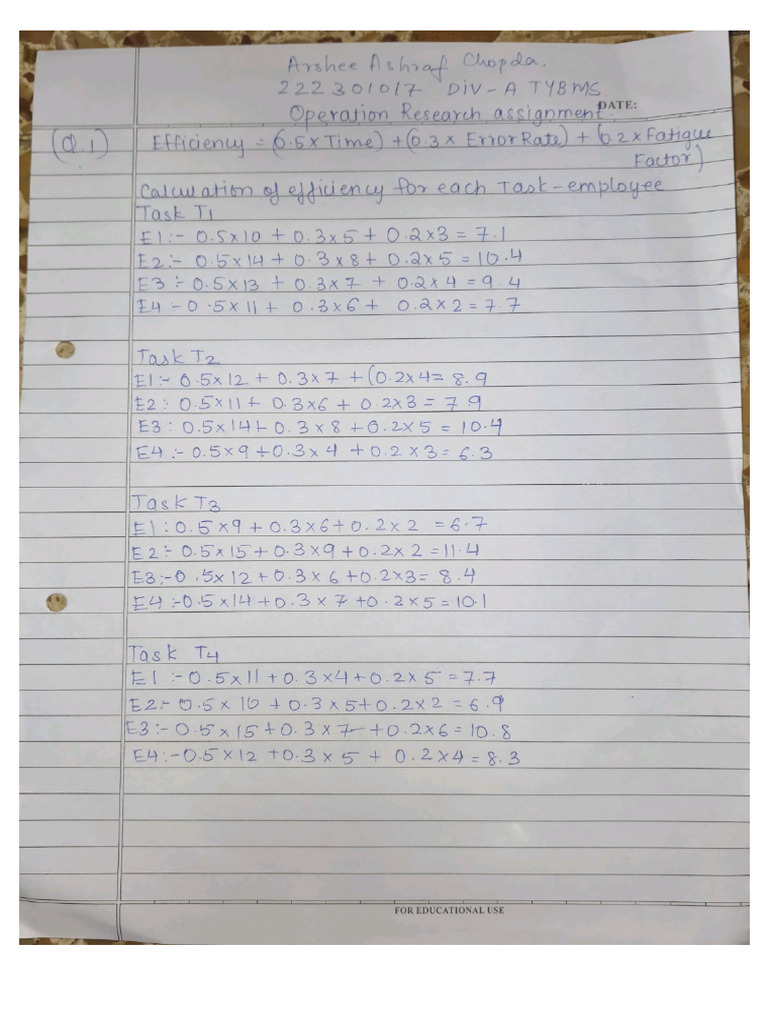 Arshee Ashraf Chopda.
222301017 DIV-A TYBMS
DATE:
Operation Research assignment.
(Q.1) Efficiency = (0.5 x Time) + (0.3 x Error Rate) + (0.2 x Fatigue
Factor)
Calculation of efficiency for each Task-employee
Task T1
E1:- 0.5x10 + 0.3x5 + 0.2x3 = 7.1
E2:- 0.5x14 + 0.3x8 + 0.2x5 = 10.4
E3:- 0.5x13 + 0.3x7 + 0.2x4 = 9.4
E4 - 0.5x11 + 0.3x6 + 0.2x2 = 7.7
Task T2
E1:- 0.5x12 + 0.3x7 + (0.2x4 = 8.9
E2: 0.5x11 + 0.3x6 + 0.2x3 = 7.9
E3: 0.5x14 + 0.3x8 + 0.2x5 = 10.4
E4:- 0.5x9 + 0.3x4 + 0.2x3 = 6.3
Task T3
E1: 0.5x9 + 0.3x6 + 0.2x2 = 6.7
E2:- 0.5x15 + 0.3x9 + 0.2x2 = 11.4
E3:- 0.5x12 + 0.3x6 + 0.2x3 = 8.4
E4:- 0.5x14 + 0.3x7 + 0.2x5 = 10.1
Task T4
E1:- 0.5x11 + 0.3x4 + 0.2x5 = 7.7
E2:- 0.5x10 + 0.3x5 + 0.2x2 = 6.9
E3:- 0.5x15 + 0.3x7 + 0.2x6 = 10.8
E4:- 0.5x12 + 0.3x5 + 0.2x4 = 8.3
FOR EDUCATIONAL USE